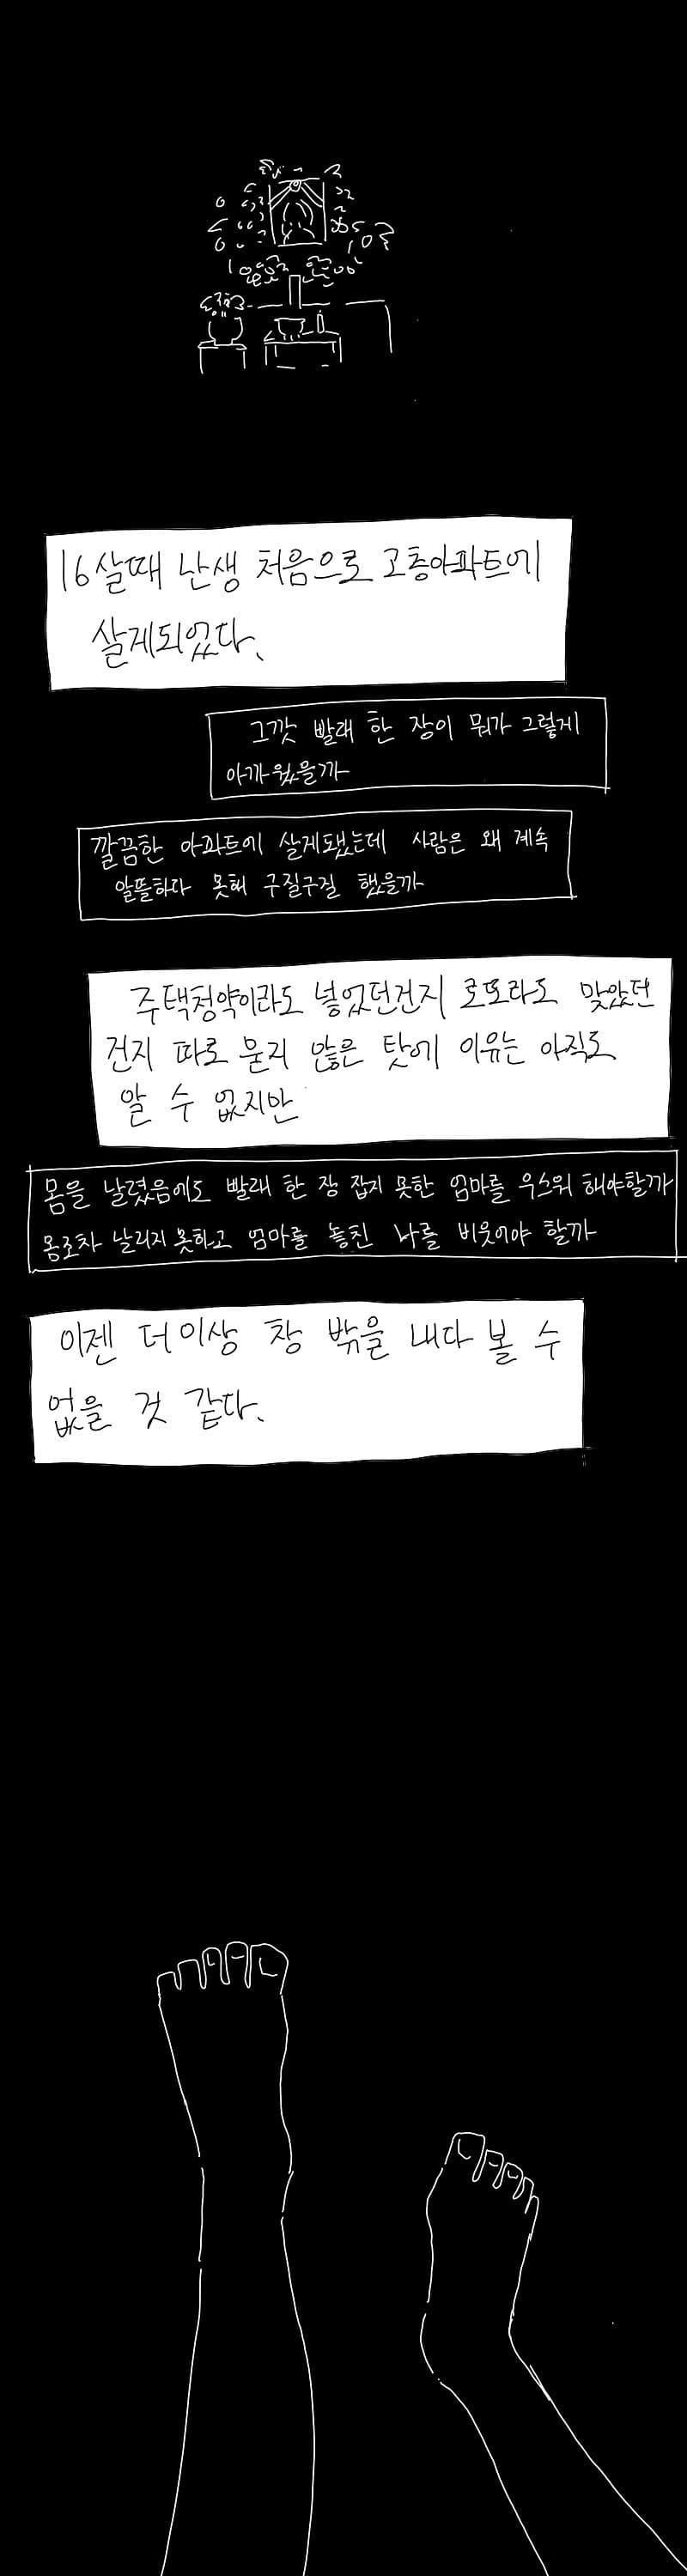 16살때 난생 처음으로 고층아파트에
살게되었다.
그깟 빨래 한 장이 뭐가 그렇게
아까웠을까
깔끔한 아파트에 살게됐는데 사람은 왜 계속
알뜰하다 못해 구질구질 했을까
주택청약이라도 넣었던건지 로또라도 맞았던
건지 따로 묻지 않은 탓에 이유는 아직도
알 수 없지만
몸을 날렸음에도 빨래 한 장 잡지 못한 엄마를 우스워 해야할까
몸조차 날리지 못하고 엄마를 놓친 나를 비웃어야 할까
이젠 더이상 창 밖을 내다 볼 수
없을 것 같다.